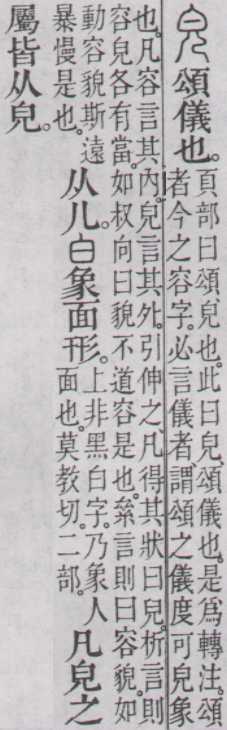 皃頌儀也。
頁部曰頌、皃也。此曰皃、頌儀也。是爲轉注。頌
者今之容字。必言儀者、謂頌之儀度可皃象
也。凡容言其內。皃言其外。引伸之、凡得其狀曰皃。析言則
容皃各有當。如叔向曰貌不道容是也。絫言則曰容貌。如
動容貌斯遠
暴慢是也。
从儿。白象面形。
上非黑白字。乃象人
面也。莫教切。二部。
凡皃之
屬皆从皃。